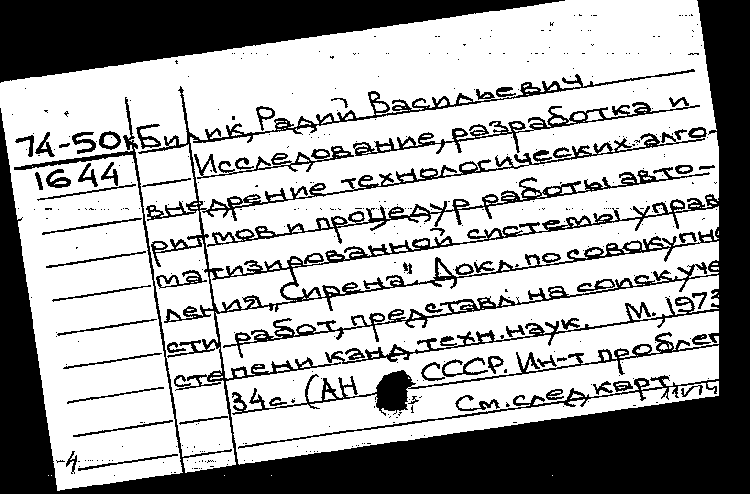 74-50к
1644
Билик, Радий Васильевич.
Исследование, разработка и
внедрение технологических алго-
ритмов и процедур работы авто-
матизированной системы управ
ления „Сирена". Докл. по совокупно
сти работ, представл. на соиск. уче
степени канд. техн. наук. М., 1973
34с. (АН СССР. Ин-т проблем
См. след. карт.